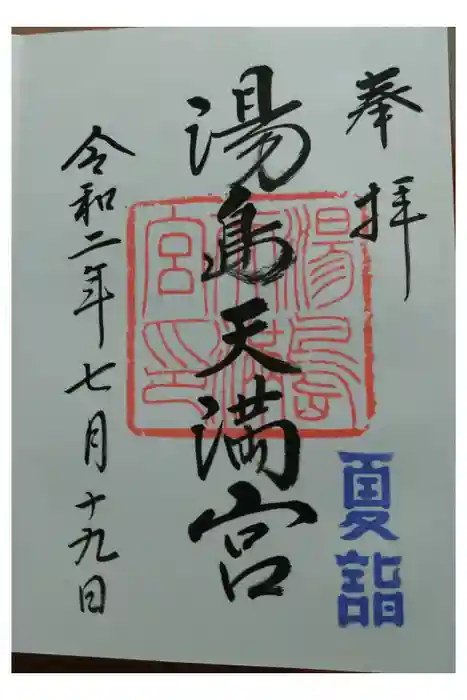 奉拝
夏詣
湯島天満宮
湯島天満宮印
令和二年七月十九日